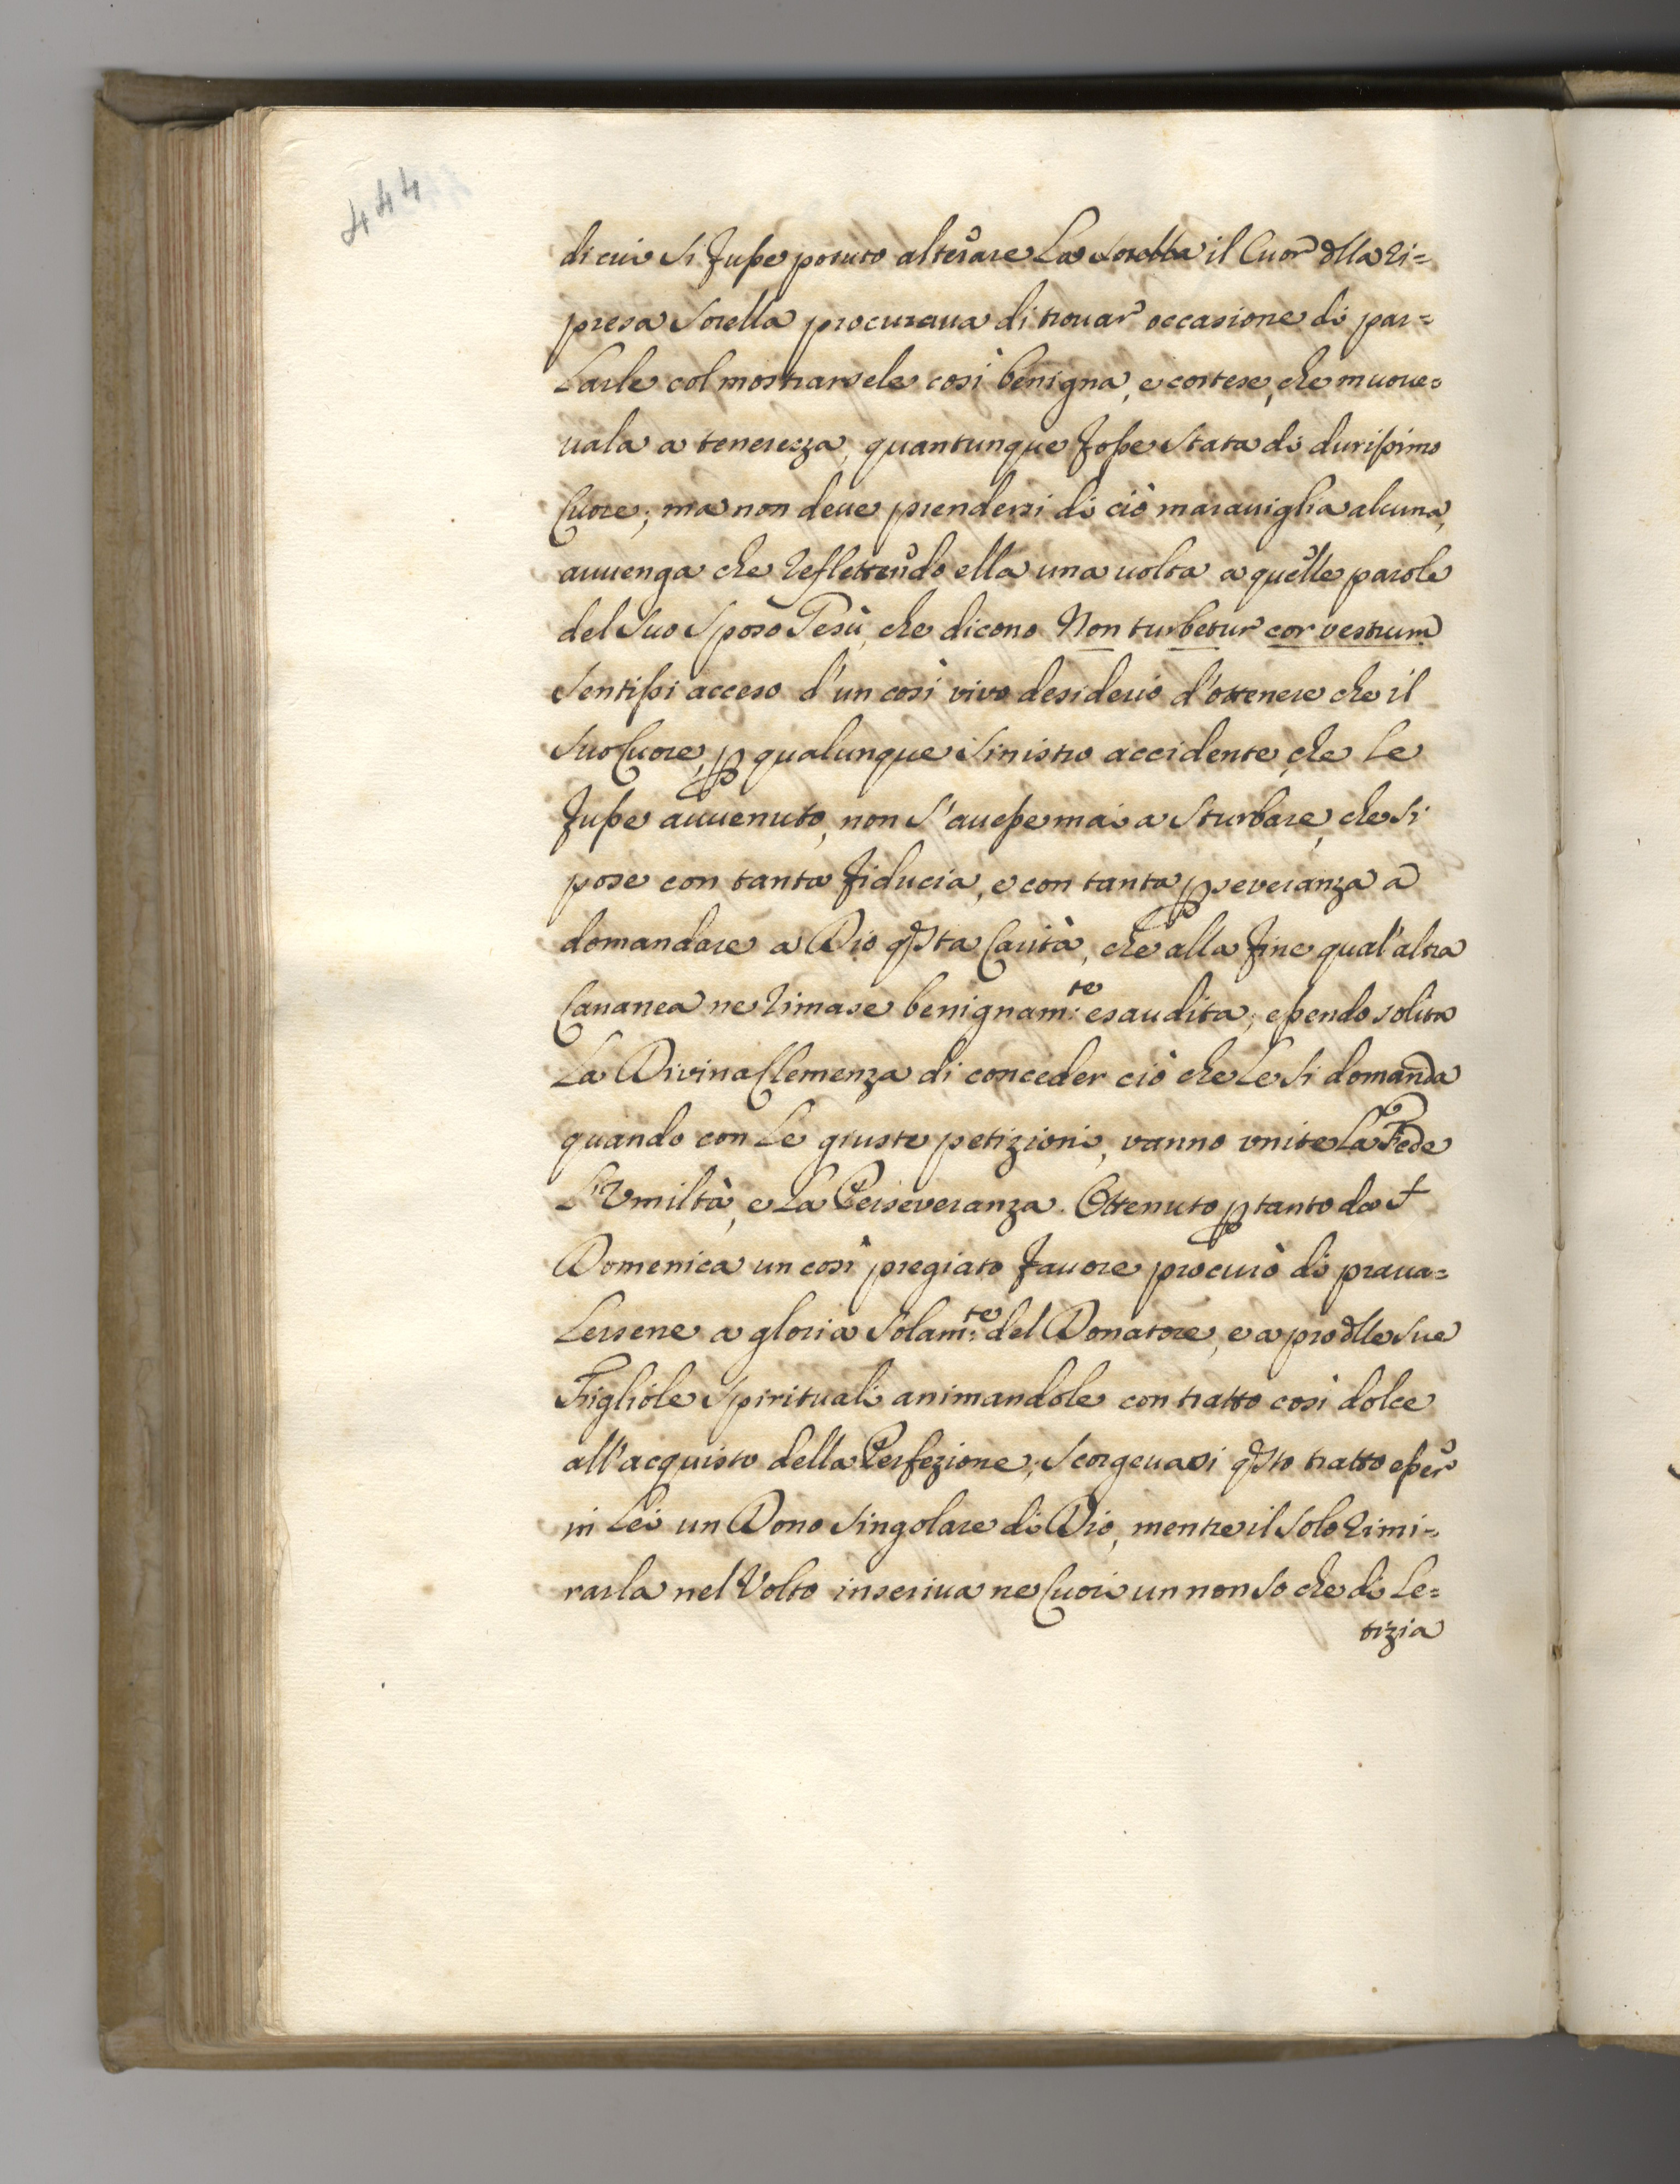 444
di cui si fusse potuto alterare La Sorella il Cuor dlla ri=
presa Sorella procuraua di trouar occasione di par=
Larle col mostrarsele così benigna, e cortese, che muoue=
uala a tenerezza, quantunque fosse stata di durissimo
Cuore; ma non deue prendersi di ciò marauiglia alcuna,
auuenga che reflettendo ella una uolta a quelle parole
del suo Sposo Gesù, che dicono Non turbetur cor vestrum
Sentissi acceso d'un così vivo desiderio d'ottenere che il
suo Cuore, p qualunque sinistro accidente, che Le
fusse auuenuto, non s'auesse mai a sturbare, che si
pose con tanta fiducia, e con tanta pseveranza a
domandare a Dio qsta Carità, che alla fine qual'altra
Cananea ne rimase benignam:te esaudita; essendo solita
La Divina Clemenza di conceder ciò che Le si domanda
quando con Le giuste petizioni, vanno vnite La Fede
L'Vmiltà, e La Perseveranza. Ottenuto ptanto da S
Domenica un così pregiato fauore procurò di praua=
Lersene a gloria solam:te del Donatore, e a pro dlle sue
Figliole Spirituali animandole con tratto così dolce
all'acquisto della Perfezione; scorgeuasi qsto tratto esser
in Lei un Dono singolare di Dio, mentre il solo rimi=
rarla nel Volto inseriua ne Cuori un non so che di Le=
tizia